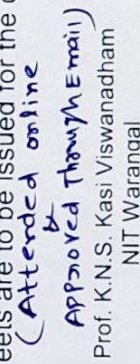 eets are to be issued for the
(Attended online
&
Approved Through Email)
Prof. K.N.S. Kasi Viswanadham
NIT Warangal